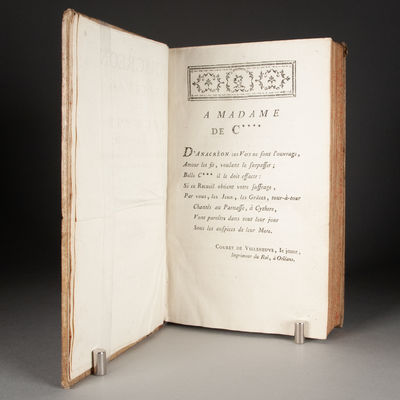 A MADAME
DE C****
D'ANACRÉON ces Vers ne sont l'ouvrage,
Amour les fit, voulant se surpasser;
Belle C*** il le doit effacer:
Si ce Recueil obtient votre suffrage,
Par vous, les Jeux, les Grâces, tour-à-tour
Chantés au Parnasse, à Cythere,
Vont paroître dans tout leur jour
Sous les auspices de leur Mere.
COURET DE VILLENEUVE, le jeune,
Imprimeur du Roi, à Orléans.